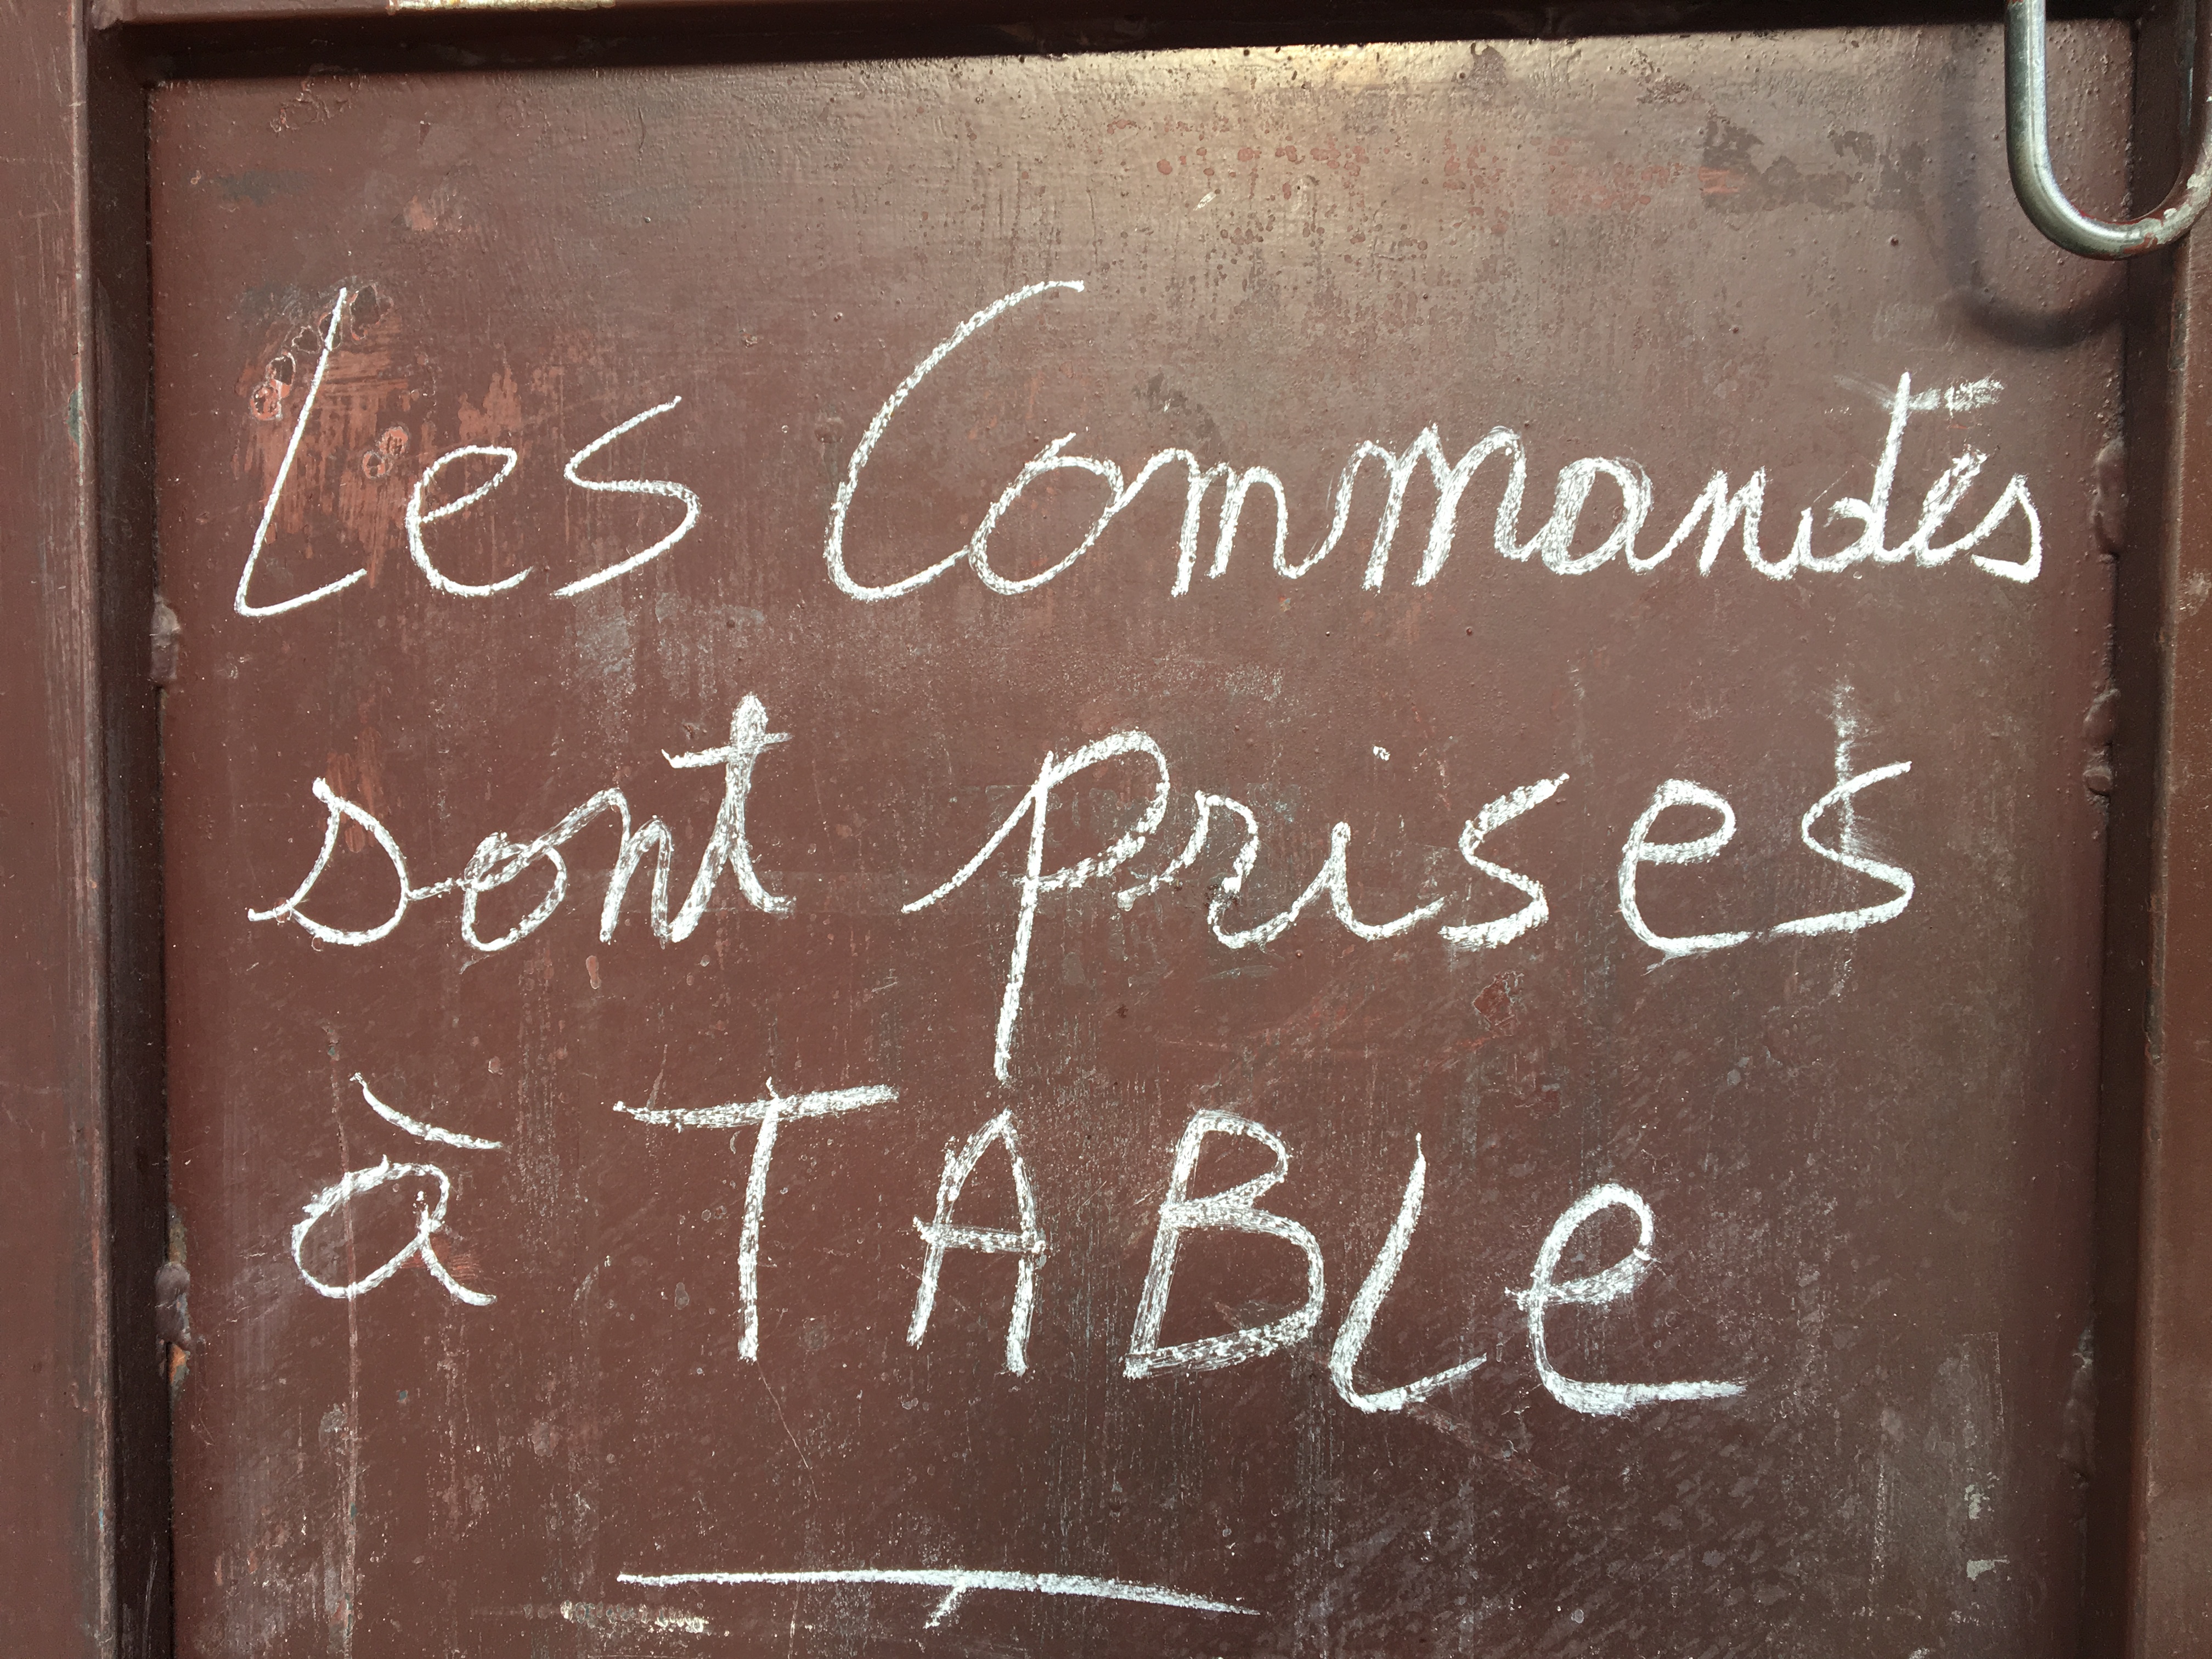 Les Commandes
sont prises
à TABLe